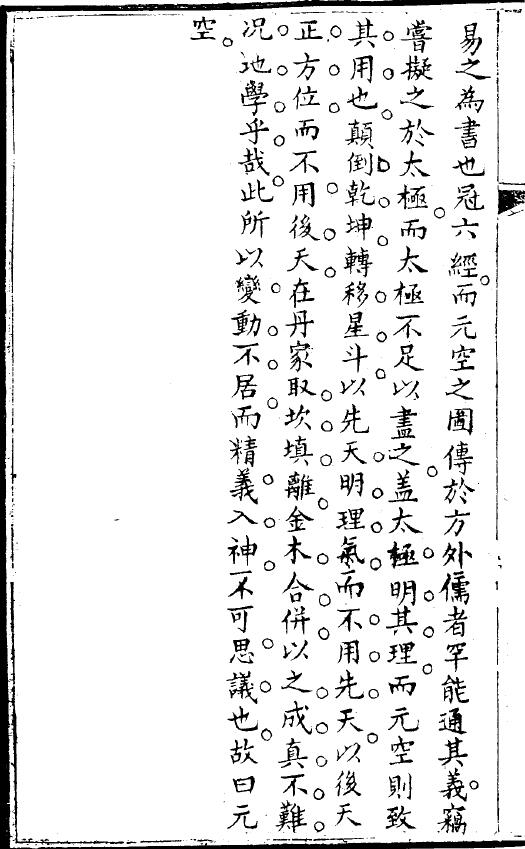 易之為書也冠六經而元空之圖傳於方外儒者罕能通其義竊
嘗擬之於太極而太極不足以盡之盖太極明其理而元空則致
其用也顛倒乾坤轉移星斗以先天明理氣而不用先天以後天
正方位而不用後天在丹家取坎填離金木合併以之成真不難
况地學乎哉此所以變動不居而精義入神不可思議也故曰元
空